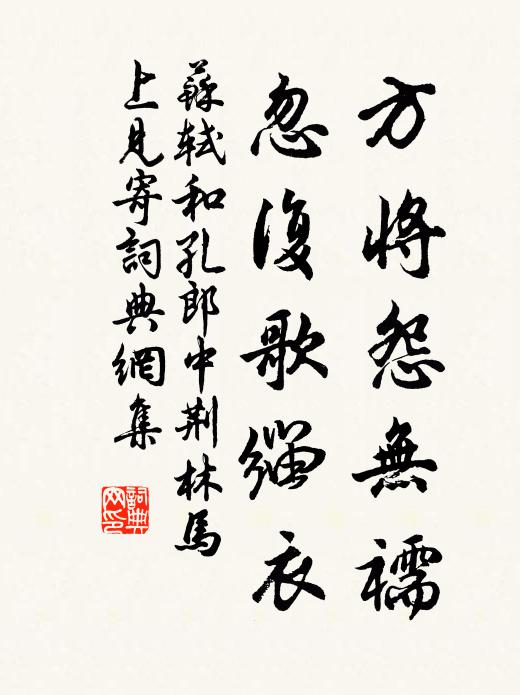 方將怨無襦
忽復歌緇衣
蘇軾和孔郎中荆林馬
上見寄詞典網集
詞典
网印